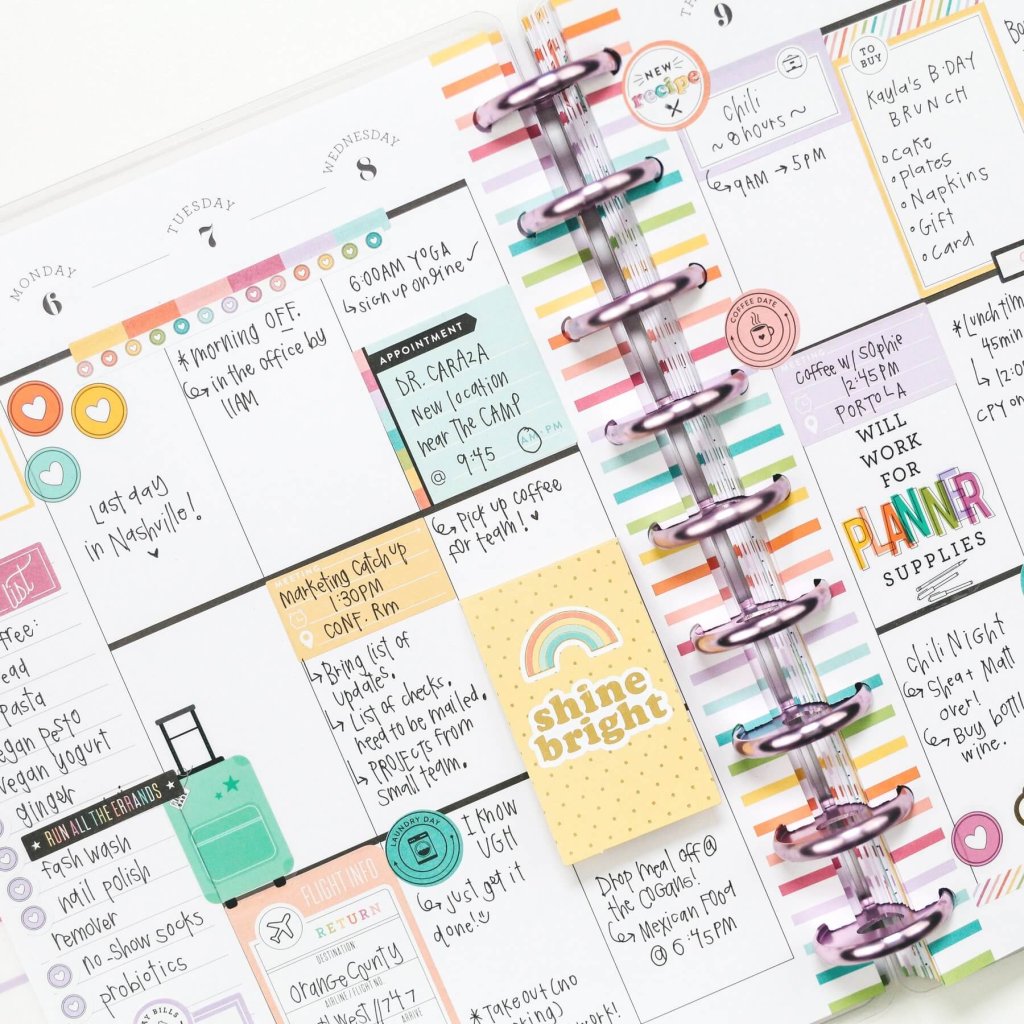 MONDAY
6
TUESDAY
7
WEDNESDAY
8
9
list
ead
pasta
egan pesto
vegan yogurt
ginger
RUN ALL THE ERRANDS
face wash
nail polish
remover
no-show socks
probiotics
Last day
in Nashville!
*morning OFF.
in the office by
11AM
MEETING
Marketing catch up
1:30PM
CONF. Rm
Bring list of
updates.
List of checks.
need to be mailed.
PROJECTS from
small team.
FLIGHT INFO
RETURN
DESTINATION
Orange County
AIRLINE/FLIGHT NO.
ARRIVE
6:00AM YOGA
sign up online
APPOINTMENT
DR. CARAZA
New location
near The CAMP
@ 9:45 AM • PM
Pick up coffee
for team!
shine
bright
LAUNDRY DAY
I know
UGH
Just get it
done!
*Take out (no
Drop meal off @
the COGANS!
Mexican Food
@ 6:45PM
NEW
recipe
Chili
~8 hours~
9AM → 5PM
COFFEE DATE
Coffee w/ Sophie
12:45PM
PORTOLA
WILL
WORK
FOR
PLANNER
SUPPLIES
Chili Night
Shea + Matt
over!
Buy
wine.
TO
BUY
Kayla's B-DAY
BRUNCH
Cake
plates
Napkins
Gift
Card
*Lunch
45min
12:0
CPY on